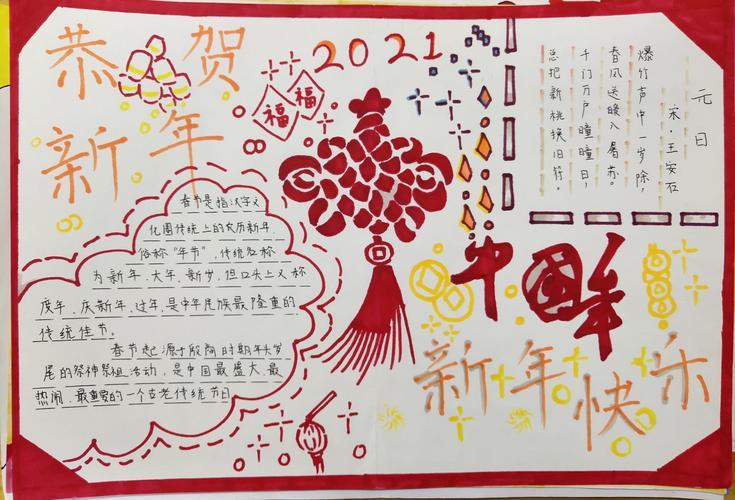 恭贺
新年
2021
福
福
元日
宋·王安石
爆竹声中一岁除，
春风送暖入屠苏。
千门万户曈曈日，
总把新桃换旧符。
春节是指汉字文
化圈传统上的农历新年，
俗称“年节”，传统名称
为新年、大年、新岁，但口头上又称
度年、庆新年、过年，是中华民族最隆重的
传统佳节。
春节起源于殷商时期年头岁
尾的祭神祭祖活动，是中国最盛大、最
热闹、最重要的一个古老传统节日
中国年
新年快乐